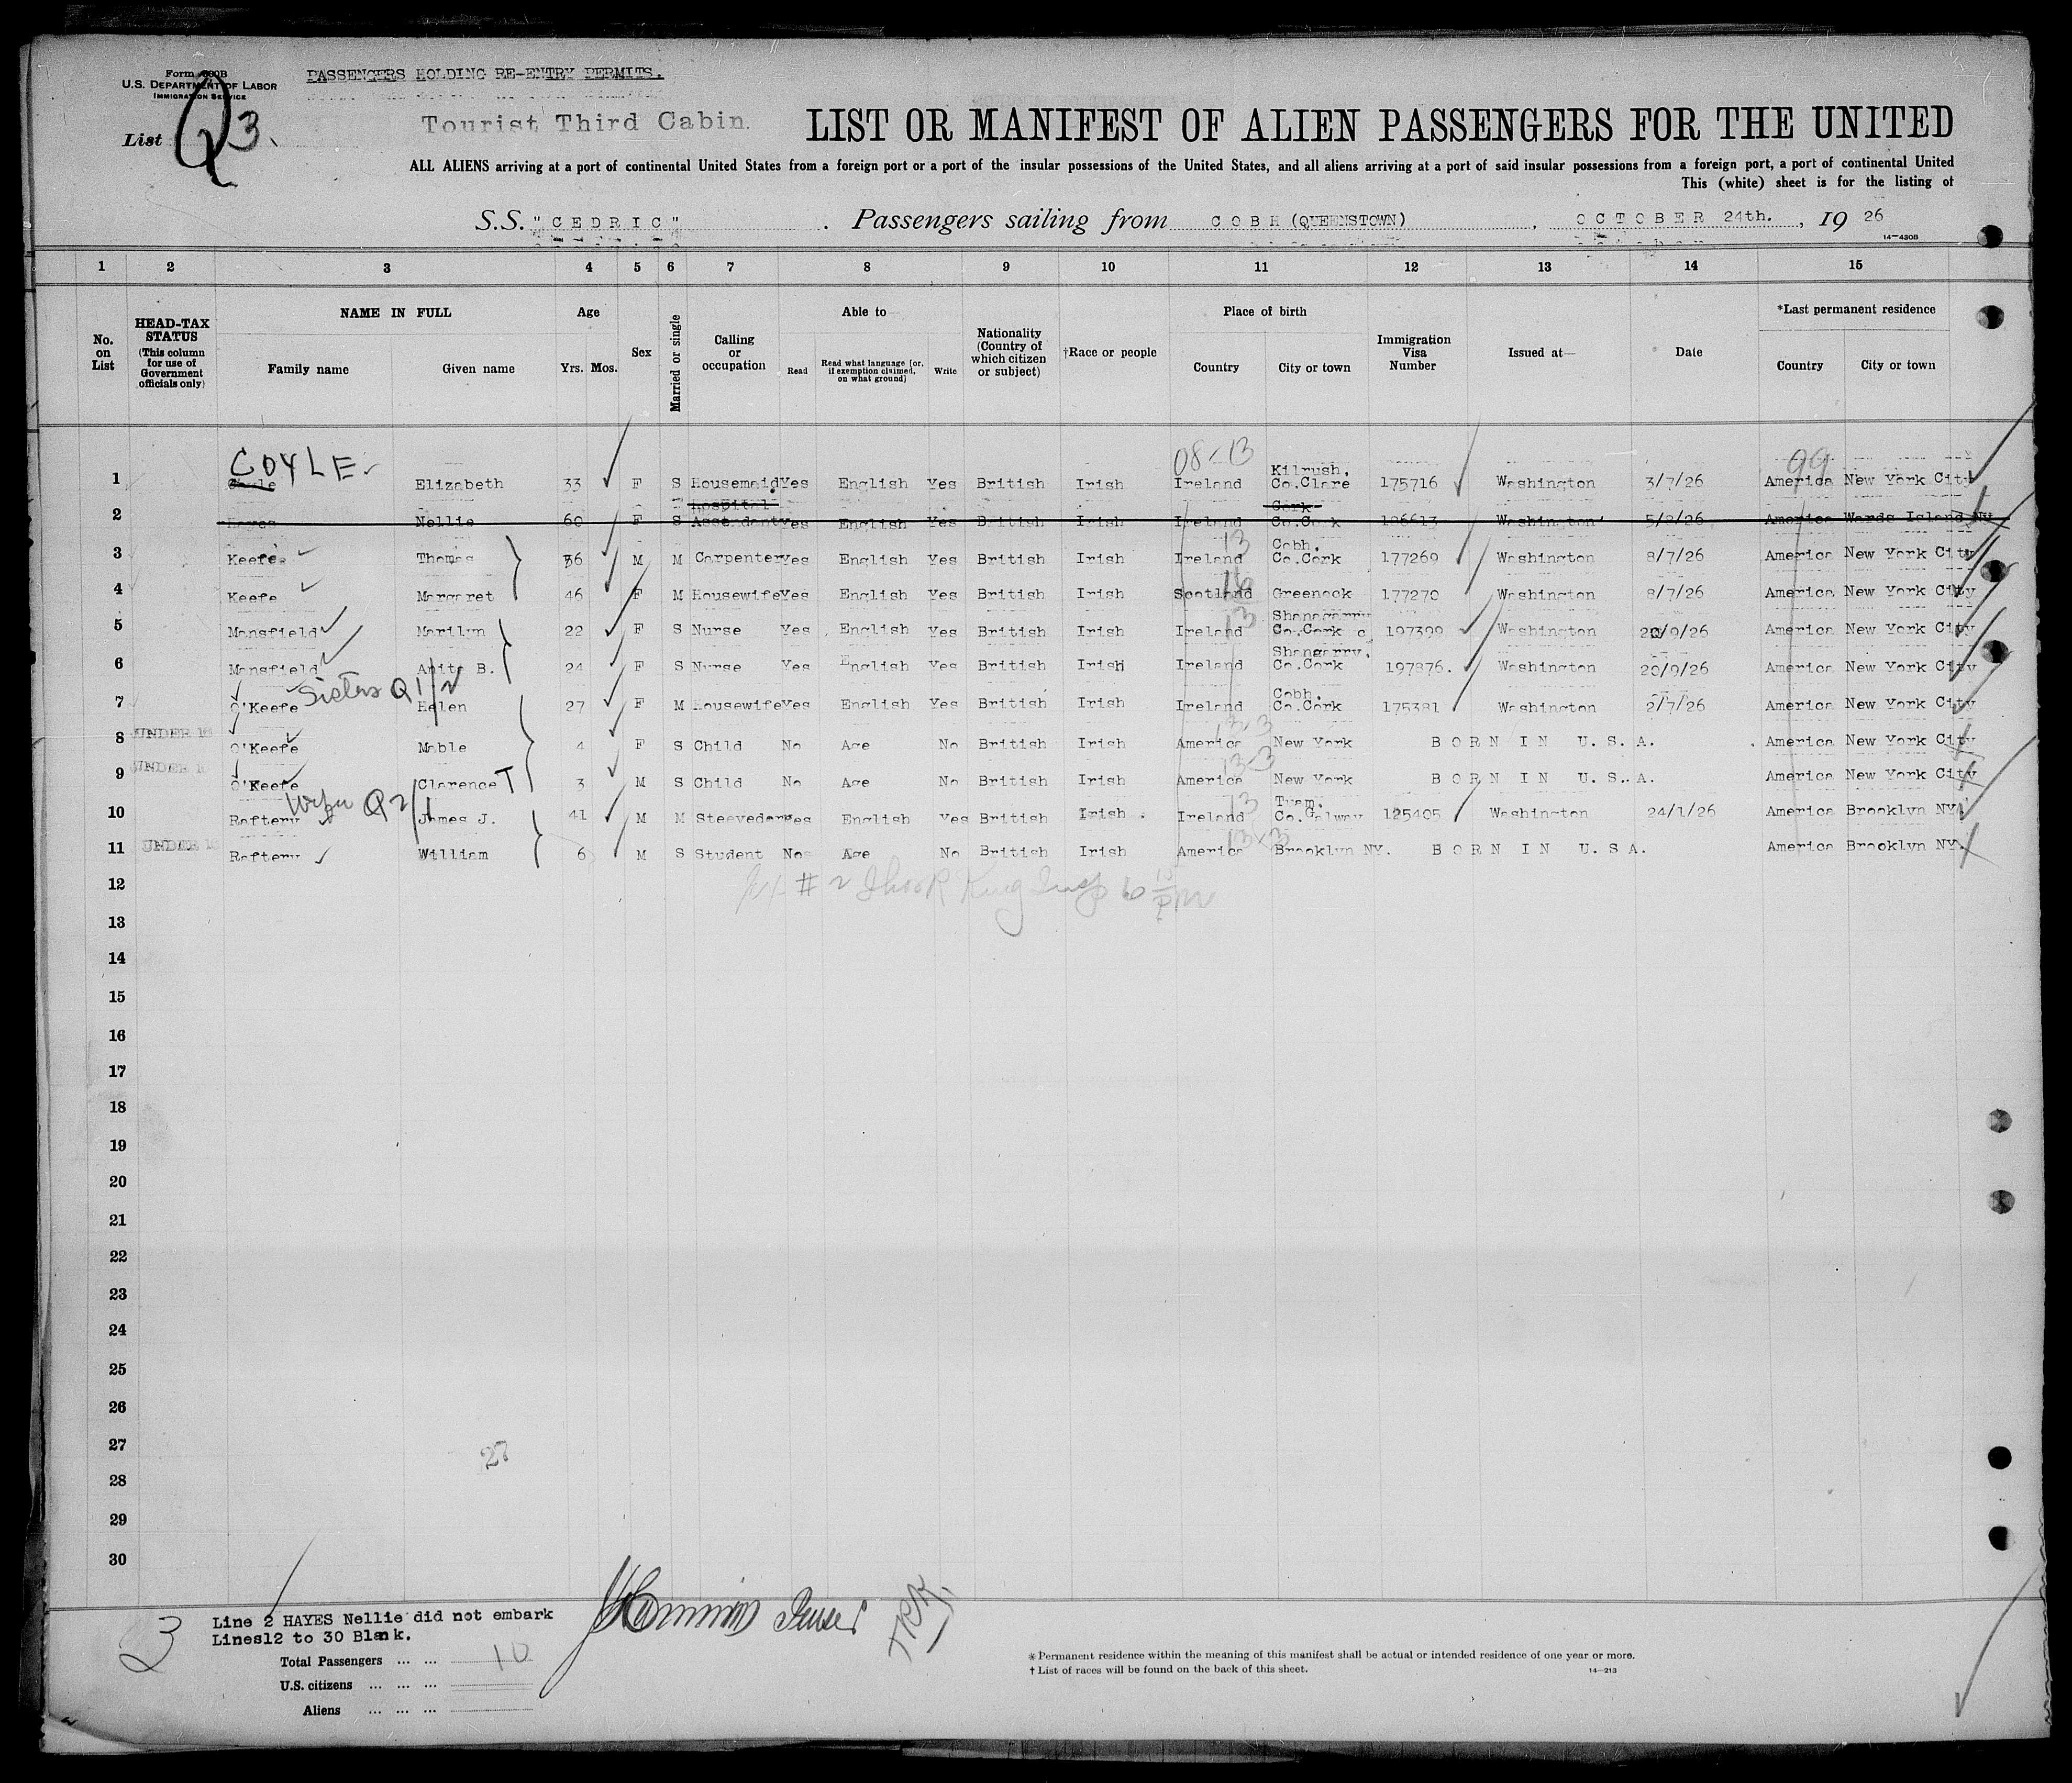 Form 630B
U.S. DEPARTMENT OF LABOR
IMMIGRATION SERVICE
PASSENGERS HOLDING RE-ENTRY PERMITS.
List Q 3.
Tourist Third Cabin.
LIST OR MANIFEST OF ALIEN PASSENGERS FOR THE UNITED
ALL ALIENS arriving at a port of continental United States from a foreign port or a port of the insular possessions of the United States, and all aliens arriving at a port of said insular possessions from a foreign port, a port of continental United
This (white) sheet is for the listing of
S.S. "CEDRIC" . Passengers sailing from COBH (QUEENSTOWN) , OCTOBER 24th. , 19 26
14-430B
1 2 3 4 5 6 7 8 9 10 11 12 13 14 15
No. on List
HEAD-TAX STATUS (This column for use of Government officials only)
NAME IN FULL
Family name Given name
Age
Yrs. Mos.
Sex
Married or single
Calling or occupation
Able to
Read Read what language [or, if exemption claimed, on what ground] Write
Nationality (Country of which citizen or subject)
†Race or people
Place of birth
Country City or town
Immigration Visa Number
Issued at—
Date
*Last permanent residence
Country City or town
COYLE 08-13 99
1 Elizabeth 33 F S Housemaid Yes English Yes British Irish Ireland Kilrush, Co.Clare 175716 Washington 3/7/26 America New York City
2 Hayes Nellie 60 F S Hospital Attendant Yes English Yes British Irish Ireland Cork Co.Cork 186613 Washington 5/8/26 America Wards Island NY
3 Keefe Thomas 56 M M Carpenter Yes English Yes British Irish Ireland 13 Cobh, Co.Cork 177269 Washington 8/7/26 America New York City
4 Keefe Margaret 46 F M Housewife Yes English Yes British Irish Scotland 16 Greenock 177270 Washington 8/7/26 America New York City
5 Mansfield Marilyn 22 F S Nurse Yes English Yes British Irish Ireland 13 Shanagarry Co.Cork 197399 Washington 20/9/26 America New York City
6 Mansfield Anita B. 24 F S Nurse Yes English Yes British Irish Ireland Shangarry, Co.Cork 197876. Washington 20/9/26 America New York City
Sisters Q 1/2
7 O'Keefe Helen 27 F M Housewife Yes English Yes British Irish Ireland Cobh, Co.Cork 175381 Washington 2/7/26 America New York City
8 UNDER 16 O'Keefe Mable 4 F S Child No Age No British Irish America 13-3 New York BORN IN U.S.A. America New York City
9 UNDER 16 O'Keefe Clarence T 3 M S Child No Age No British Irish America 13-3 New York BORN IN U.S.A. America New York City
Wife Q 2/1
10 Raftery James J. 41 M M Steevedore Yes English Yes British Irish Ireland 13 Tuam, Co.Galway 125405 Washington 24/1/26 America Brooklyn NY
11 UNDER 16 Raftery William 6 M S Student No Age No British Irish America 13-3 Brooklyn NY. BORN IN U.S.A. America Brooklyn NY.
12
13
14
15
16
17
18
19
20
21
22
23
24
25
26
27
27
28
29
30
3
Line 2 HAYES Nellie did not embark
Lines12 to 30 Blank.
Total Passengers ... ... 10
U.S. citizens ... ... ...
Aliens ... ... ...
* Permanent residence within the meaning of this manifest shall be actual or intended residence of one year or more.
† List of races will be found on the back of this sheet. 14-213